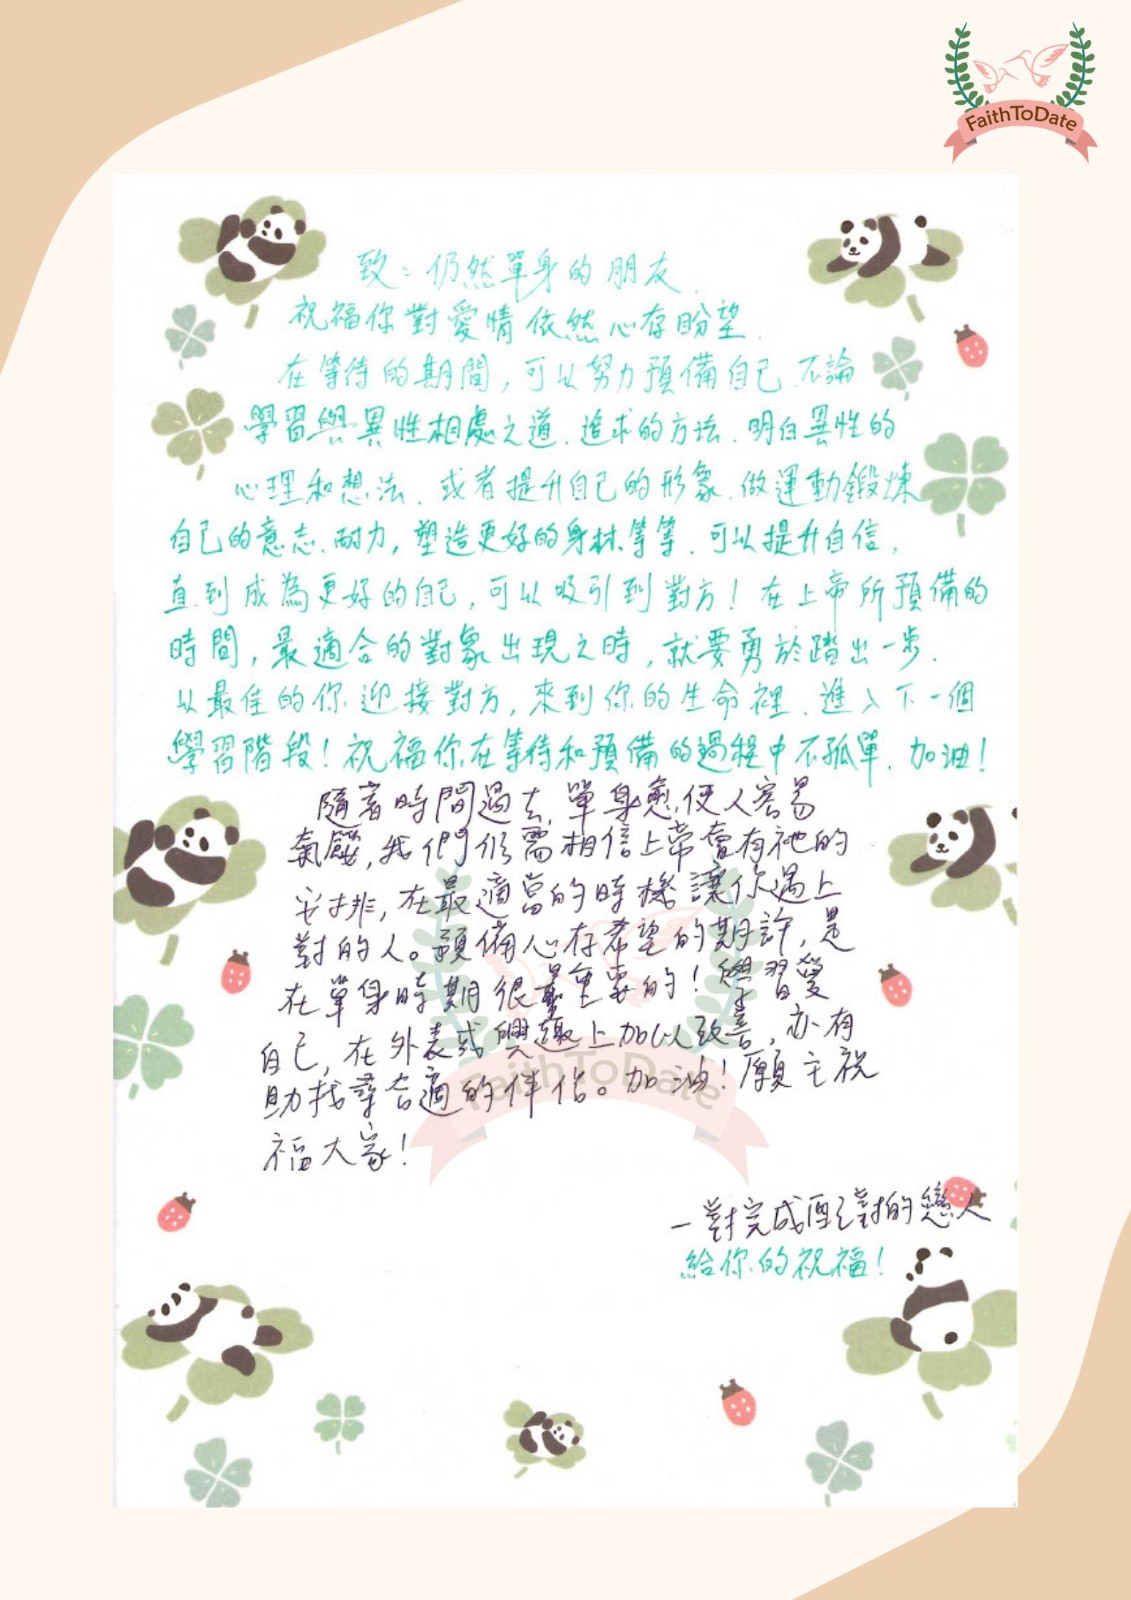 FaithToDate
致：仍然單身的朋友，
祝福你對愛情依然心存盼望．
在等待的期間，可以努力預備自己．不論
學習與異性相處之道、追求的方法、明白異性的
心理和想法、或者提升自己的形象、做運動鍛煉
自己的意志、耐力，塑造更好的身材、等等．可以提升自信，
直到成為更好的自己，可以吸引到對方！在上帝所預備的
時間，最適合的對象出現之時，就要勇於踏出一步．
以最佳的你迎接對方，來到你的生命裡．進入下一個
學習階段！祝福你在等待和預備的過程中不孤單．加油！
隨著時間過去，單身愈使人容易
氣餒，我們仍需相信上帝會有祂的
安排，在最適當的時機讓你遇上
對的人。預備心存希望的期許，是
在單身時期很重要的！學習愛
自己，在外表或興趣上加以改善，亦有
助找尋合適的伴侶。加油！願主祝
福大家！
FaithToDate
一對完成配對的戀人
給你的祝福！